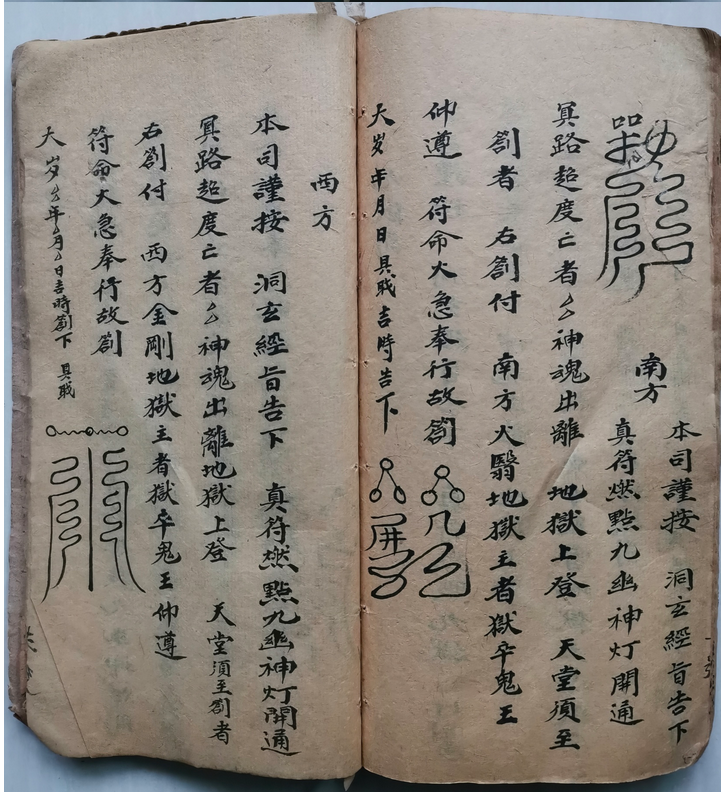 南方
本司謹按　洞玄經旨告下
真符燃點九幽神灯開通
冥路超度亡者厶厶神魂出離　地獄上登　天堂須至
劄者　右劄付　南方火翳地獄主者獄卒鬼王
仲遵　符命大急奉行故劄
大岁　年月日具戝吉時告下
西方
本司謹按　洞玄經旨告下　真符燃點九幽神灯開通
冥路超度亡者厶厶神魂出離地獄上登　天堂須至劄者
右劄付　西方金剛地獄主者獄卒鬼王仲遵
符命大急奉行故劄
大岁厶年厶月厶日吉時劄下　具戝